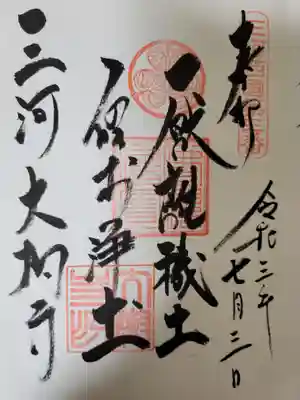 奉拝
令和三年七月三日
厭離穢土
欣求浄土
三河大樹寺